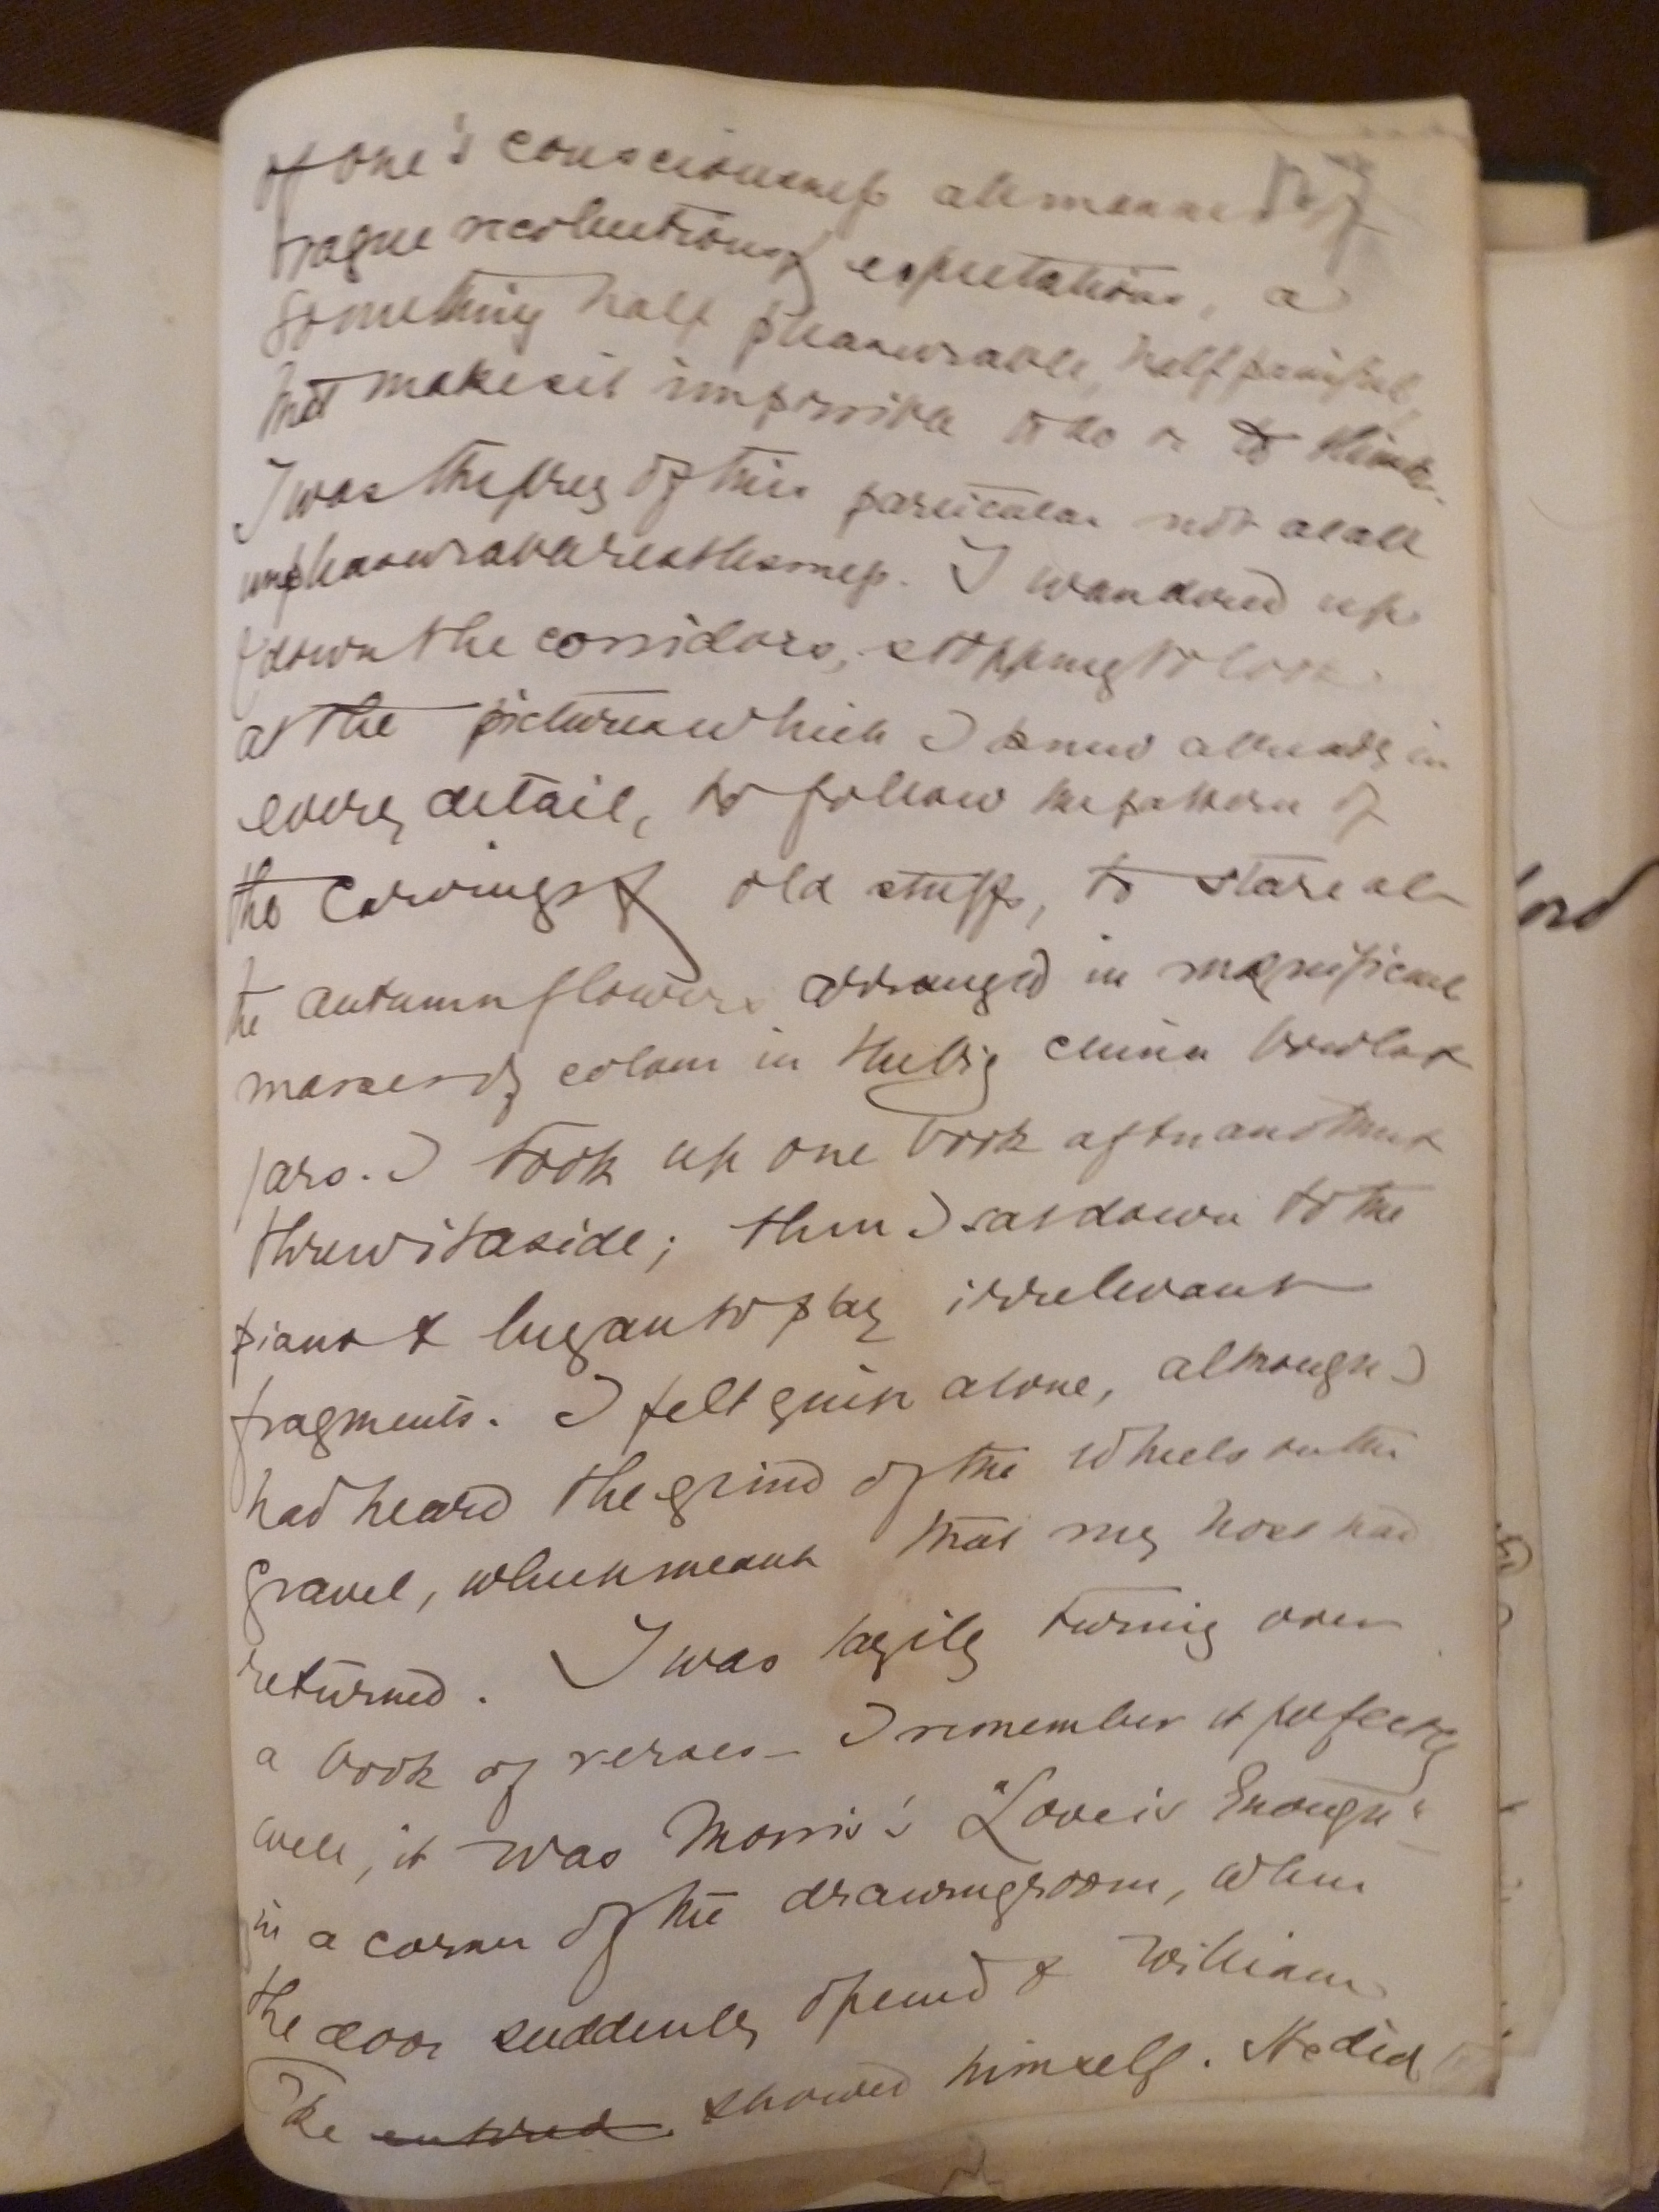 of one's consciousness all manner of
vague recollections & expectations, a
something half pleasurable, half painful,
that makes it impossible to do or to think.
I was the prey of this particular not at all
unpleasurable restlessness. I wandered up
& down the corridors, stopping to look
at the pictures which I knew already in
every detail, to follow the pattern of
the carvings & old stuffs, to stare at
the autumn flowers arranged in magnificent
masses of colour in the big china bowls &
jars. I took up one book after another &
threw it aside; then I sat down to the
piano & began to play irrelevant
fragments. I felt quite alone, although I
had heard the grind of the wheels on the
gravel, which meant that my host had
returned. I was lazily turning over
a book of verses – I remember it perfectly
well, it was Morris's "Love is Enough"
in a corner of the drawingroom, when
the door suddenly opened & William
Oke entered showed himself. He did
ord